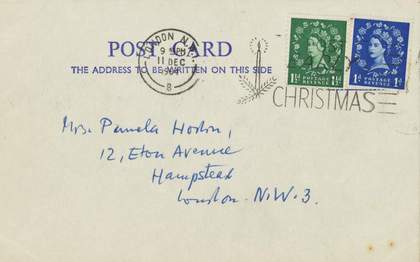 POST CARD
THE ADDRESS TO BE WRITTEN ON THIS SIDE
LONDON N.
11 DEC
8
CHRISTMAS
1½D POSTAGE REVENUE 1½D
1D POSTAGE REVENUE 1D
Mrs. Pamela Horton,
12, Eton Avenue
Hampstead
London. N.W.3.